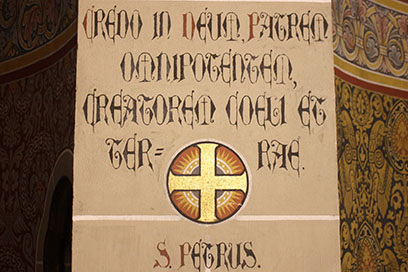 CREDO IN DEUM, PATREM
OMNIPOTENTEM,
CREATOREM COELI ET
TER= RAE.
S. PETRUS.